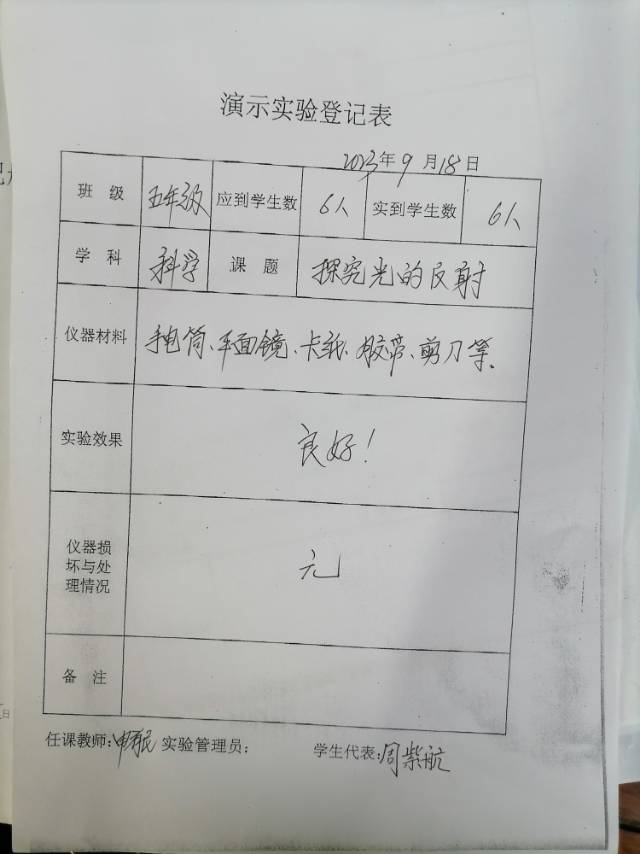 演示实验登记表
2023年9月18日
班 级 五年级 应到学生数 6人 实到学生数 6人
学 科 科学 课 题 探究光的反射
仪器材料 手电筒、平面镜、卡纸、胶带、剪刀等.
实验效果 良好!
仪器损
坏与处
理情况
无
备 注
任课教师: 实验管理员: 学生代表:周紫航